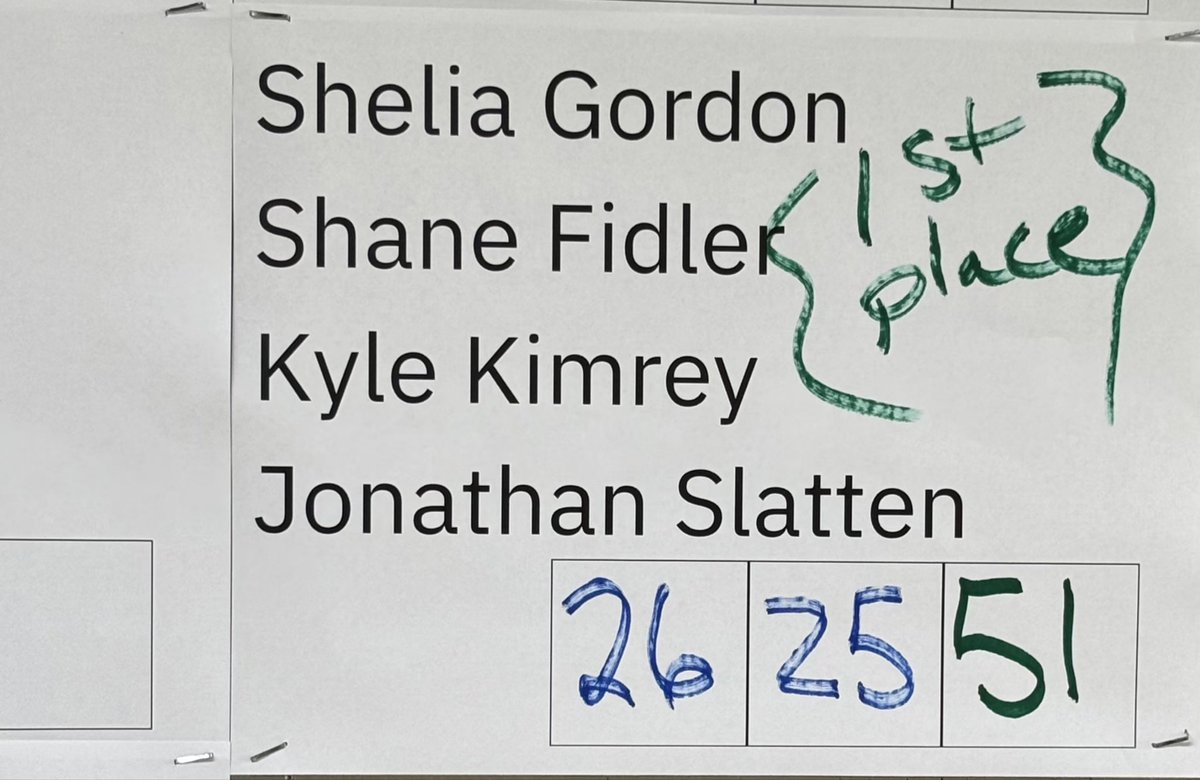 Shelia Gordon
Shane Fidler
Kyle Kimrey
Jonathan Slatten
{ 1st
place }
26 25 51